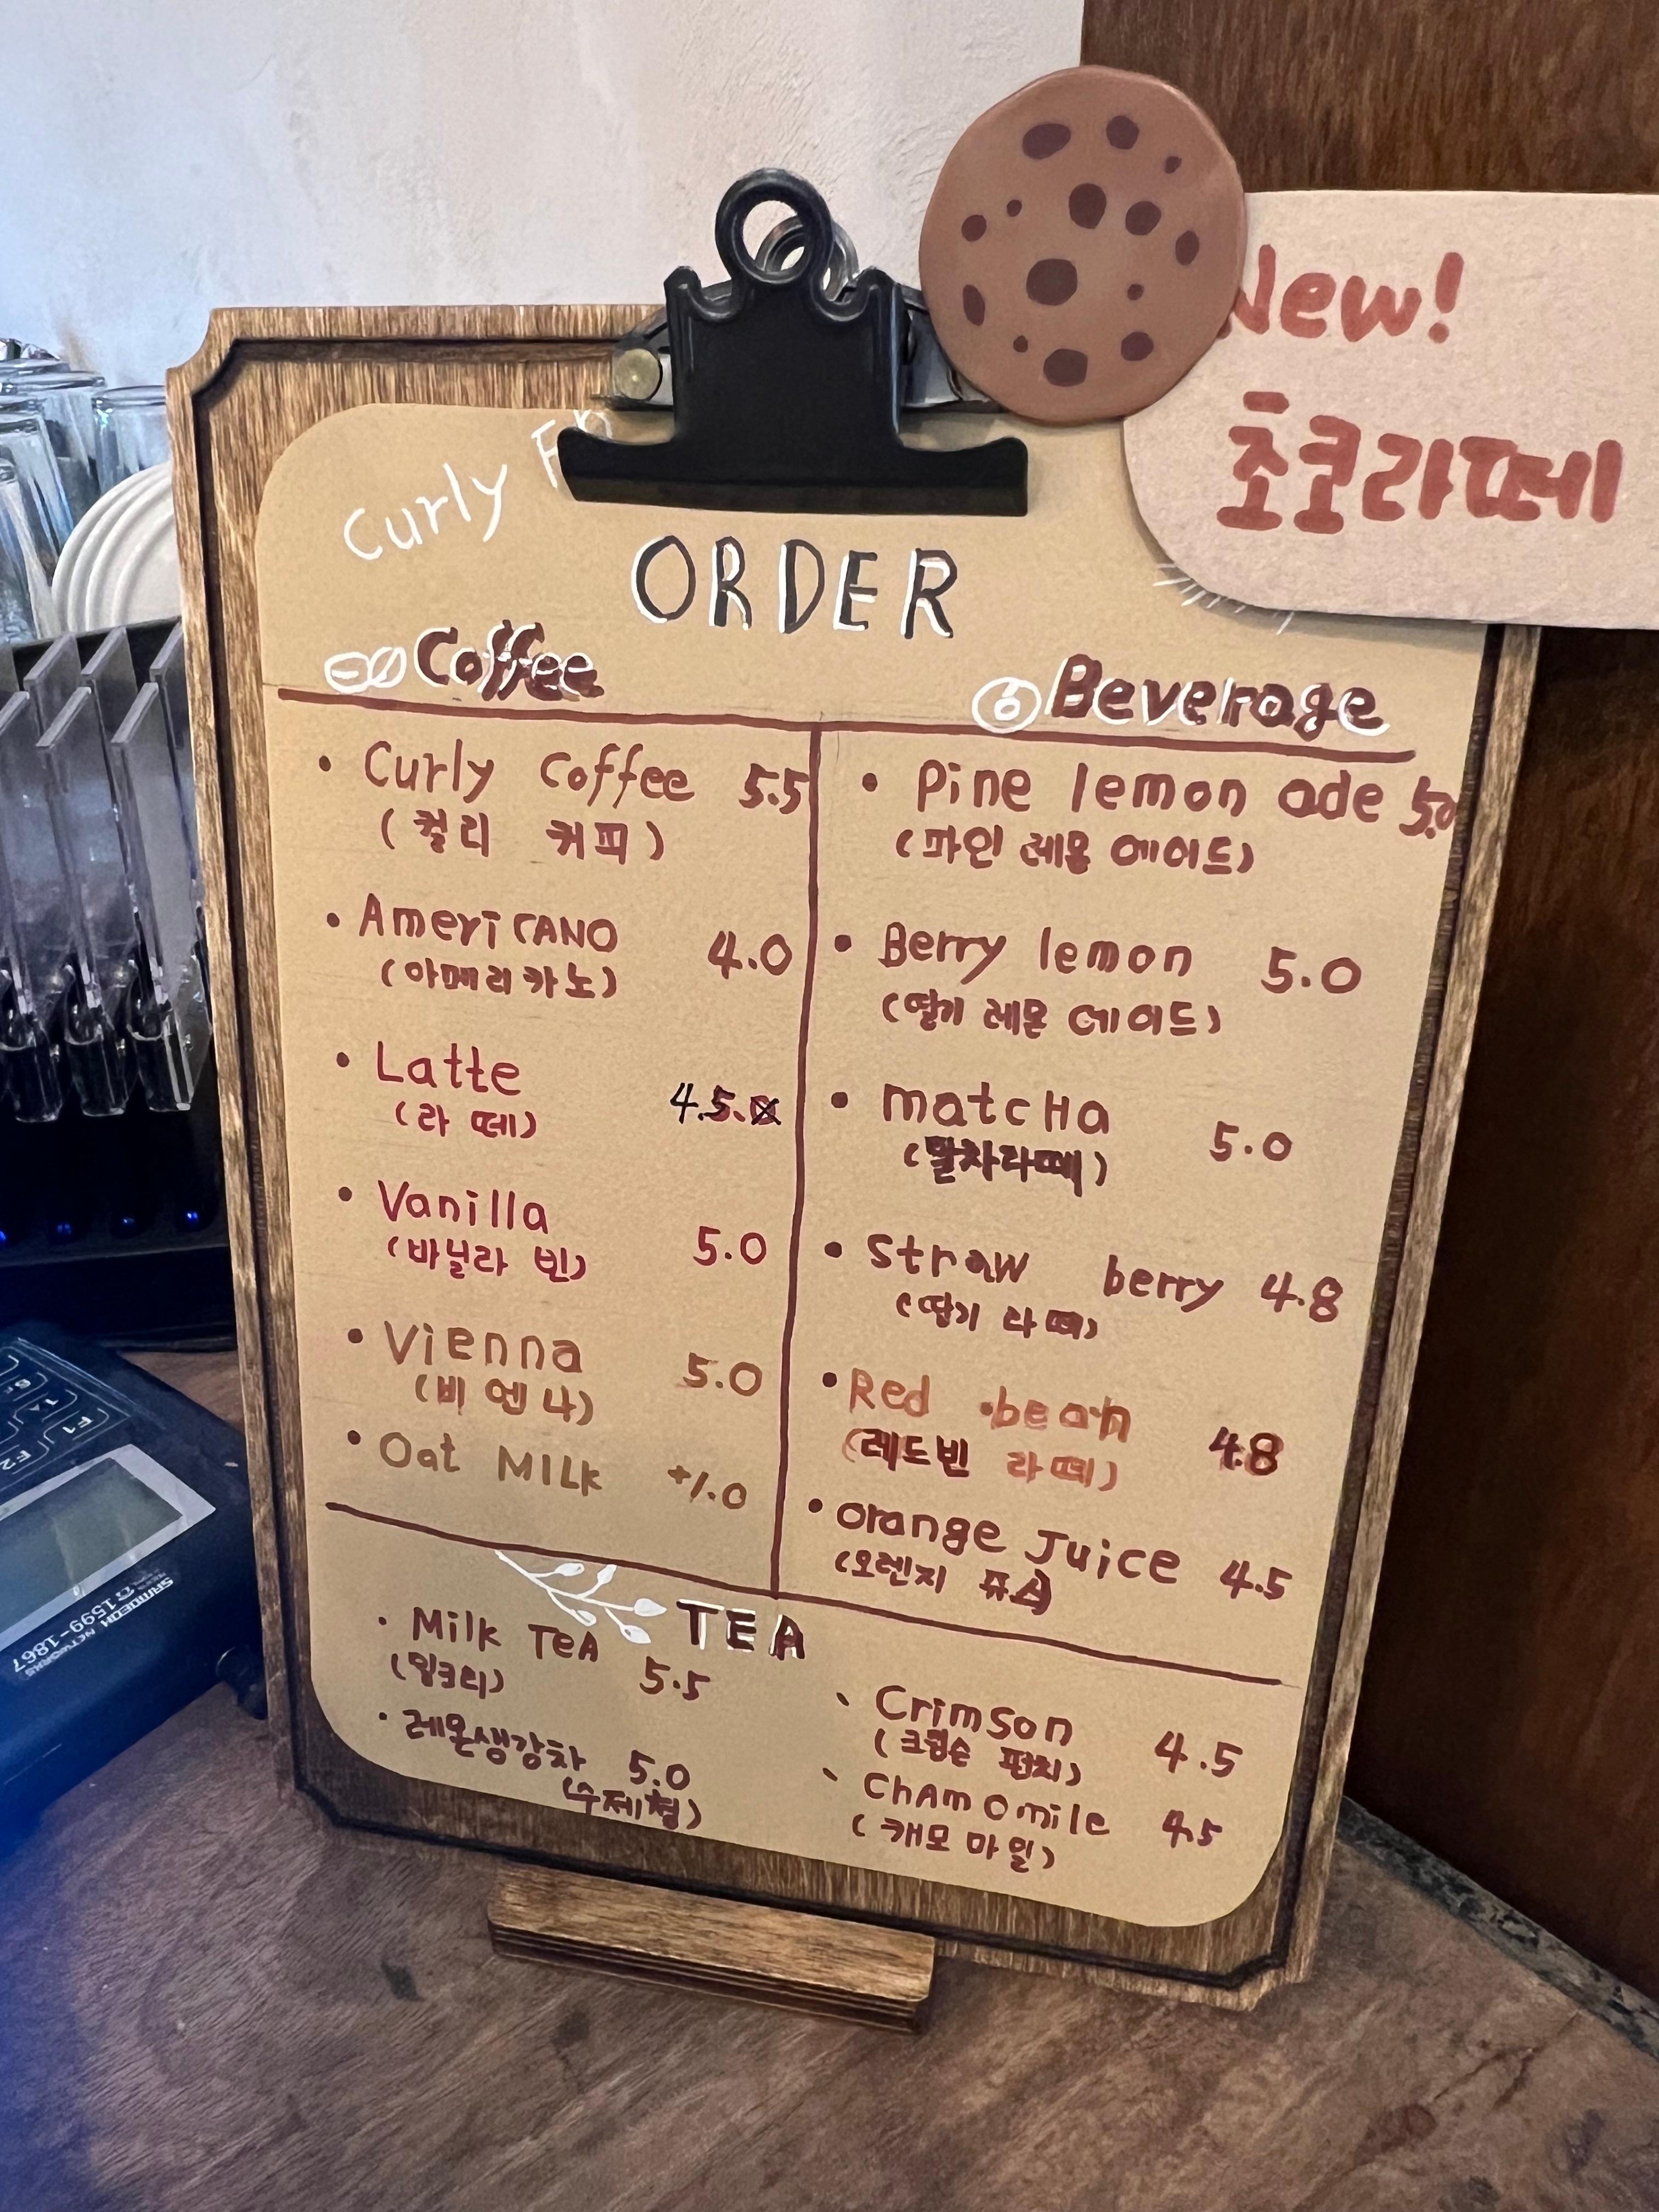 New!
초코라떼
Curly
ORDER
Coffee
Curly Coffee 5.5
(컬리 커피)
AmeriCANO 4.0
(아메리카노)
Latte 4.5
(라떼)
Vanilla 5.0
(바닐라 빈)
Vienna 5.0
(비엔나)
Oat MILK +1.0
Beverage
Pine lemon ade 5.0
(파인 레몽 에이드)
Berry lemon 5.0
(딸기 레몬 에이드)
matcHa 5.0
(말차라떼)
straw berry 4.8
(딸기 라떼)
Red bean 4.8
(레드빈 라떼)
orange Juice 4.5
(오렌지 쥬스)
TEA
Milk TeA 5.5
(밀크티)
레몬생강차 5.0
(수제청)
Crimson 4.5
(크림슨 펀치)
ChAmomile 4.5
(캐모마일)
F1
F2
SAMDEOH NETWORKS
1599-1867